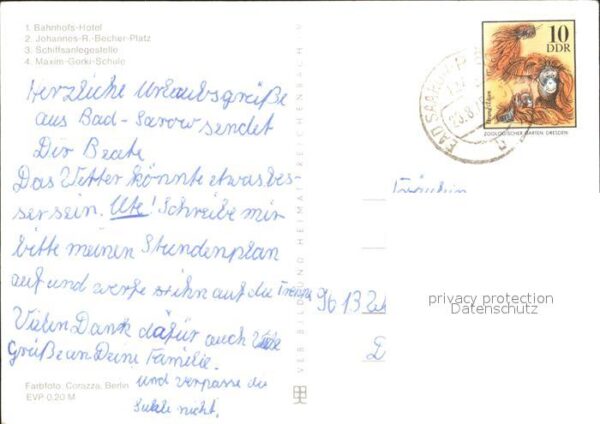 1. Bahnhofs-Hotel
2. Johannes-R.-Becher-Platz
3. Schiffsanlegestelle
4. Maxim-Gorki-Schule
Herzliche Urlaubsgrüße
aus Bad-Sarow sendet
Dir Beate
Das Wetter könnte etwas bes-
ser sein. Ute! Schreibe mir
bitte meinen Stundenplan
auf und werfe ihn auf die
Vielen Dank dafür auch Viele
Grüße an Deine Familie.
und verpasse die
nicht.
Farbfoto: Corazza, Berlin
EVP 0,20 M
VEB BILD UND HEIMAT REICHENBACH V
10
DDR
ZOOLOGISCHER GARTEN DRESDEN
BAD SAAROW
Fräulein
9613
privacy protection
Datenschutz